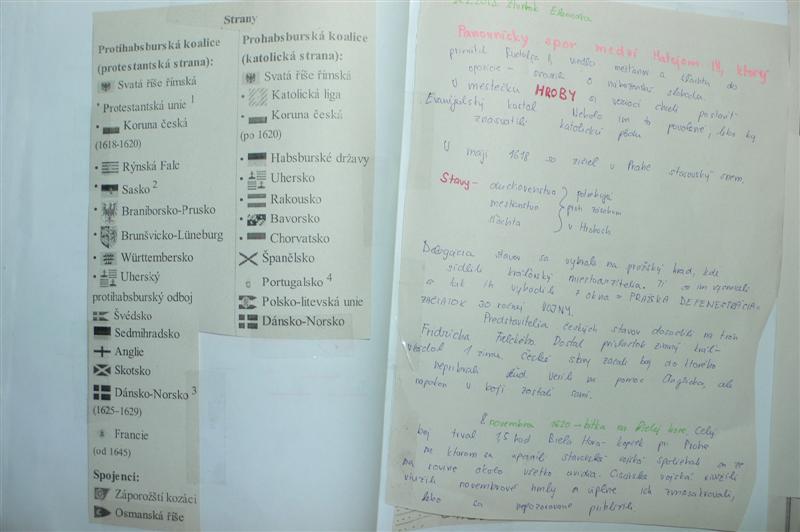 Strany
Protihabsburská koalice
(protestantská strana):
Svatá říše římská
Protestantská unie 1
Koruna česká
(1618-1620)
Rýnská Falc
Sasko 2
Braniborsko-Prusko
Brunšvicko-Lüneburg
Württembersko
Uherský
protihabsburský odboj
Švédsko
Sedmihradsko
Anglie
Skotsko
Dánsko-Norsko 3
(1625–1629)
Francie
(od 1645)
Spojenci:
Záporožští kozáci
Osmanská říše
Prohabsburská koalice
(katolická strana):
Svatá říše římská
Katolická liga
Koruna česká
(po 1620)
Habsburské državy
Uhersko
Rakousko
Bavorsko
Chorvatsko
Španělsko
Portugalsko 4
Polsko-litevská unie
Dánsko-Norsko
Panovnícky spor medzi Matejom II, ktorý
prinútil Rudolfa II, vodcu mešťanov a šľachtu do
opozície – o náboženskú slobodu.
V mestečku HROBY si veriaci chceli postaviť
Evanjelický kostol. Nebolo im to povolené, lebo by
znásilnili katolícku pôdu
V máji 1618 sa zišiel v Prahe stavovský snem.
Stavy – duchovenstvo
meštianstvo
šľachta
proti zásahom
v Hroboch
Delegácia stavov sa vybrala na pražský hrad, kde
sídlili kráľovský miestodržitelia. Tí
a tak ich vyhodili z okna = PRAŽSKÁ DEFENESTRÁCIA =
ZAČIATOK 30 ROČNEJ VOJNY.
Predstavitelia českých stavov dosadili na trón
Fridricha Falckého. Dostal prívlastok zimný kráľ –
vládol 1 zimu. České stavy začali boj do ktorého
nepribrali ľud. Verili na pomoc Anglicka, ale
napokon v boji zostali sami.
8 novembra 1620 – bitka na Bielej hore. Celý
boj trval 1,5 hod Biela Hora – kopček pri Prahe
na ktorom sa stavovské vojská spoliehali sa že
na rovine okolo všetko uvidia. Cisárske vojská využili
novembrové hmly a úplne ich zmasakrovali,
lebo sa nepozorovane priblížili